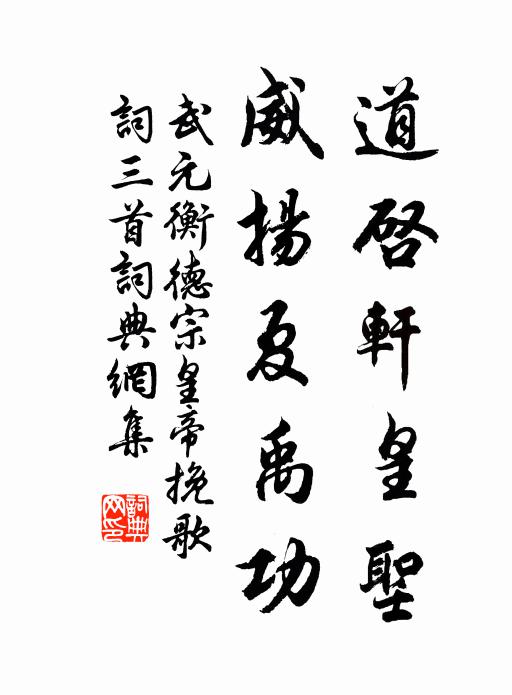 道啓軒皇聖
威揚夏禹功
武元衡德宗皇帝挽歌
詞三首詞典網集
詞典网印